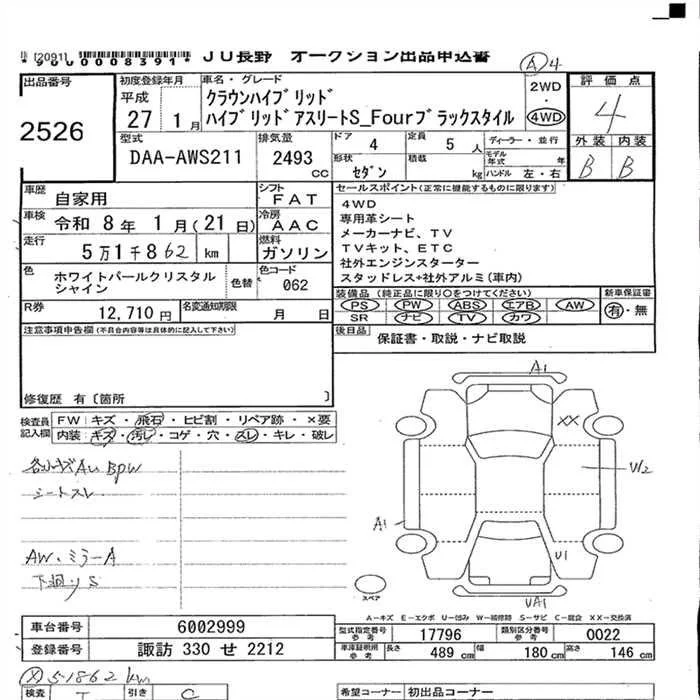 [2091] *9000008391* JU長野 オークション出品申込書
出品番号
2526
初度登録年月
平成
27年 1月
車名・グレード
クラウンハイブリッド
ハイブリッドアスリートS_Fourブラックスタイル
A4
2WD
4WD
評価点
4
外装 内装
B B
型式
DAA-AWS211
排気量
2493 CC
ドア 4
形状 セダン
定員 5 人
積載 kg
ディーラー・並行
モデル年式 年
ハンドル 左・右
車歴 自家用
車検 令和 8年 1月(21日)
走行 5万1千862 km
シフト FAT
冷房 AAC
燃料 ガソリン
色 ホワイトパールクリスタルシャイン
色替
色コード 062
R券 12,710 円
名変通知期限 月 日
セールスポイント(正常に機能するものに限ります)
4WD
専用革シート
メーカーナビ、TV
TVキット、ETC
社外エンジンスターター
スタッドレス+社外アルミ(車内)
装備品(純正品に限り○をつけてください)
PS PW ABS エアB AW
SR ナビ TV カワ
新車保証書
有・無
後日品 保証書・取説・ナビ取説
注意事項申告欄(不具合内容等は具体的に記入して下さい)
修復歴 有〔箇所 〕
検査員記入欄
FW キズ・飛石・ヒビ割・リペア跡・×要
内装:キズ・汚レ・コゲ・穴・スレ・キレ・破レ
各小キズAU BPW
シートスレ
AW、ミラーA
下廻りS
A1
XX
W2
A1
U1
UA1
スペア
A－キズ E－エクボ U－凹み W－補修跡 S－サビ C－腐食 XX－交換済
車台番号 6002999
登録番号 諏訪 330 せ 2212
型式指定番号 参考 17796
類別区分番号 参考 0022
車庫証明用 参考 長さ 489 cm 幅 180 cm 高さ 146 cm
51862 km
検査
引き
C
希望コーナー 初出品コーナー